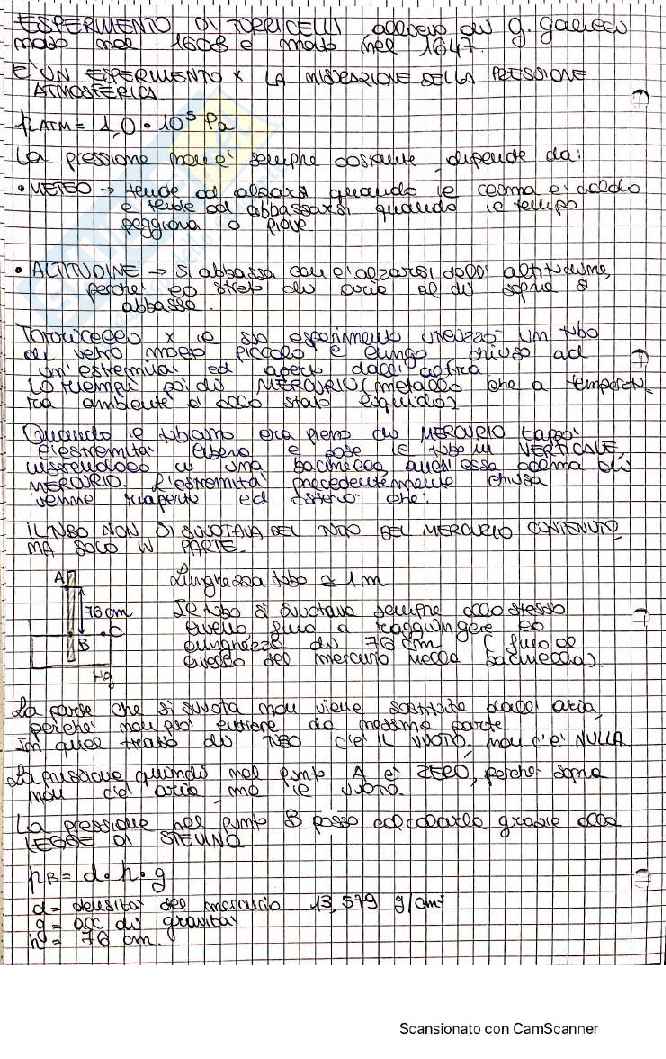 ESPERIMENTO DI TORRICELLI allievo di G. Galileo
nato nel 1608 e morto nel 1647.
È UN ESPERIMENTO x LA MISURAZIONE DELLA PRESSIONE
ATMOSFERICA
PATM = 1,0 • 10⁵ Pa
La pressione non è sempre costante, dipende da:
• METEO → tende ad alzarsi quando c'è calma e caldo
e tende ad abbassarsi quando il tempo
peggiora o piove
• ALTITUDINE → si abbassa con l'alzarsi dell'altitudine,
perché lo strato di aria al di sopra si
abbassa.
Torricelli x il suo esperimento utilizzò un tubo
di vetro molto piccolo e lungo chiuso ad
un'estremità ed aperto dall'altra
Lo riempì poi di MERCURIO (metallo che a tempera-
tura ambiente è allo stato liquido)
Quando il tubicino era pieno di MERCURIO tappò
l'estremità libera e pose il tubo in VERTICALE,
in una bacinella, anch'essa colma di
MERCURIO. L'estremità precedentemente chiusa
venne riaperta ed che:
IL TUBO NON SI SVUOTAVA DEL TUTTO DEL MERCURIO CONTENUTO,
MA SOLO IN PARTE.
A
76 cm
C
B
Hg
Lunghezza tubo ≅ 1 m
Il tubo si svuotava sempre allo stesso
livello fino a raggiungere la
lunghezza di 76 cm (fino al
livello del mercurio nella bacinella).
La parte che si svuota non viene sostituita dall'aria,
perché non può entrare da nessuna parte
In quel tratto di TUBO c'è IL VUOTO, non c'è NULLA
La pressione quindi nel punto A è ZERO, perché sopra
non c'è aria, ma il vuoto.
La pressione nel punto B posso calcolarla grazie alla
LEGGE DI STEVINO
PB = d • h • g
d = densità del mercurio 13,579 g/cm³
g = acc di gravità
h = 76 cm.
Scansionato con CamScanner